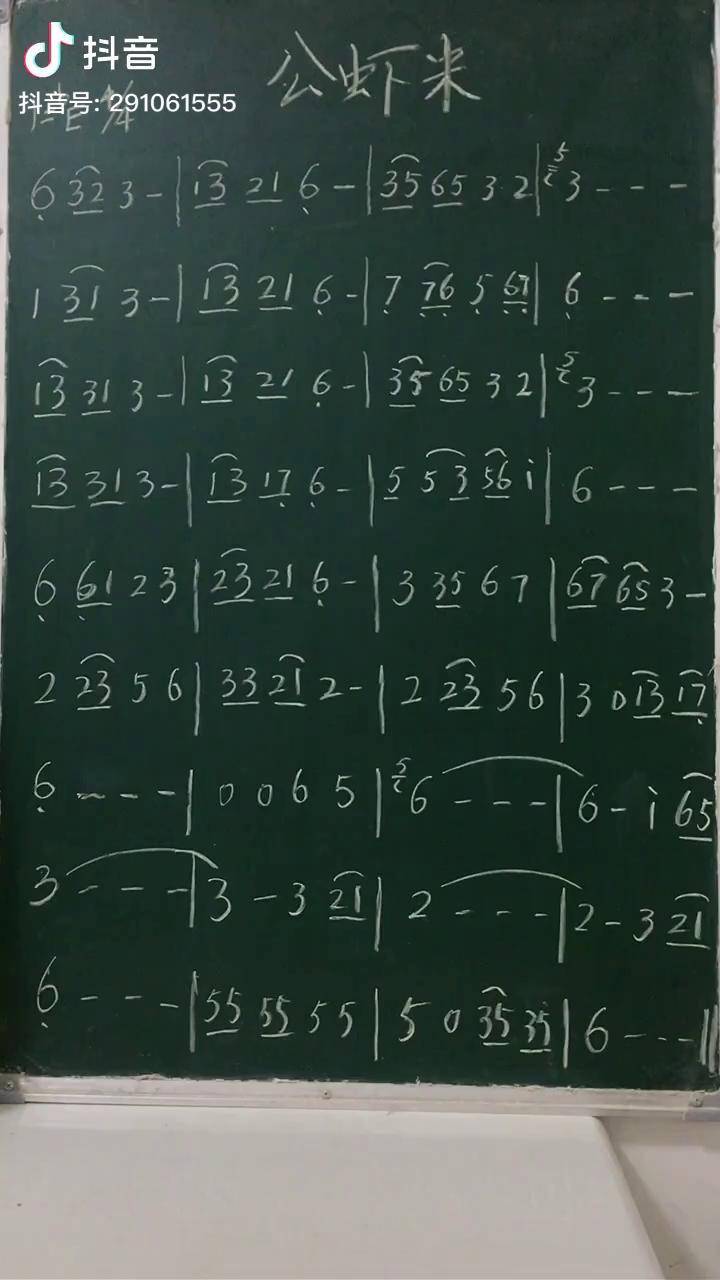 抖音
抖音号: 291061555
公虾米
6̣ 3̲2̲ 3 - | 1̲3̲ 2̲1̲ 6̣ - | 3̲5̲ 6̲5̲ 3 2 | ⁵3 - - -
1 3̲1̲ 3 - | 1̲3̲ 2̲1̲ 6̣ - | 7̣ 7̲̣6̲̣ 5̣ 6̲̣7̲̣ | 6̣ - - -
1̲3̲ 3̲1̲ 3 - | 1̲3̲ 2̲1̲ 6̣ - | 3̲5̲ 6̲5̲ 3 2 | ⁵3 - - -
1̲3̲ 3̲1̲ 3 - | 1̲3̲ 1̲7̲̣ 6̣ - | 5̲ 5 3̲ 5̲6̲ i | 6 - - -
6̣ 6̲̣1̲ 2 3 | 2̲3̲ 2̲1̲ 6̣ - | 3 3̲5̲ 6 7 | 6̲7̲ 6̲5̲ 3 -
2 2̲3̲ 5 6 | 3̲3̲ 2̲1̲ 2 - | 2 2̲3̲ 5 6 | 3 0 1̲3̲ 1̲7̲̣
6̣ - - - | 0 0 6 5 | ⁵6 - - - | 6 - i 6̲5̲
3 - - - | 3 - 3 2̲1̲ | 2 - - - | 2 - 3 2̲1̲
6̣ - - - | 5̲5̲ 5̲5̲ 5 5 | 5 0 3̲5̲ 3̲5̲ | 6 - - - ||